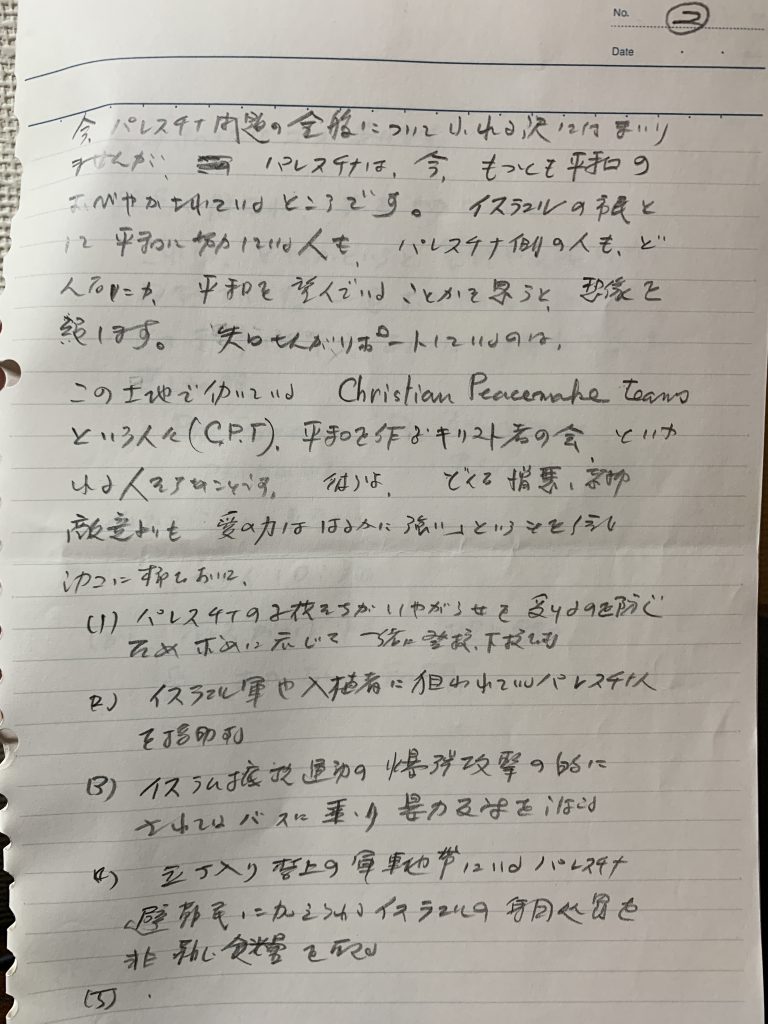 No. 2
Date
今、パレスチナ問題の全般についてふれる訳にはまいり
ませんが、パレスチナは、今、もっとも平和の
おびやかされているところです。イスラエルの市民と
して平和に努力している人も、パレスチナ側の人も、ど
んなにか、平和を望んでいることかを思うと、想像を
絶します。矢口さんがリポートしているのは、
この土地で働いている Christian Peacemake teams
という人々(C.P.T)、平和を作るキリスト者の会、といわ
れる人々のことです。彼らは、
敵意よりも 愛の力は はるかに強い」ということを信じ
(1) パレスチナの子供たちがいやがらせを受けるのを防ぐ
ため 求めに応じて 一緒に登校、下校する
(2) イスラエル軍や入植者に狙われているパレスチナ人
を援助する
(3) イスラム抵抗運動の爆弾攻撃の的に
されているバスに乗り 暴力反対を
(4) 立ち入り禁止の軍事地帯にいる パレスチナ
避難民に加えられるイスラエルの
非難し 食糧を配る
(5)